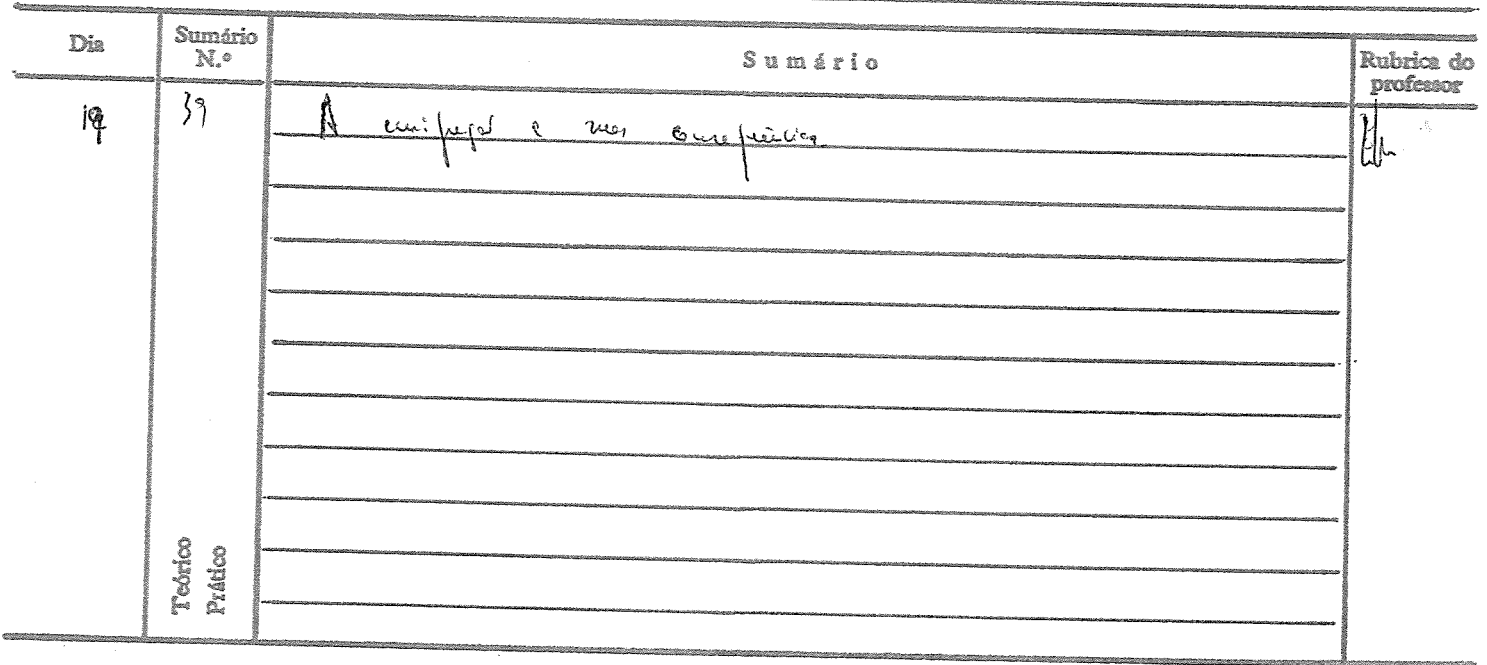 Dia
Sumário
N.º
Sumário
Rubrica do
professor
39
A emigração e suas consequências
Teórico
Prático